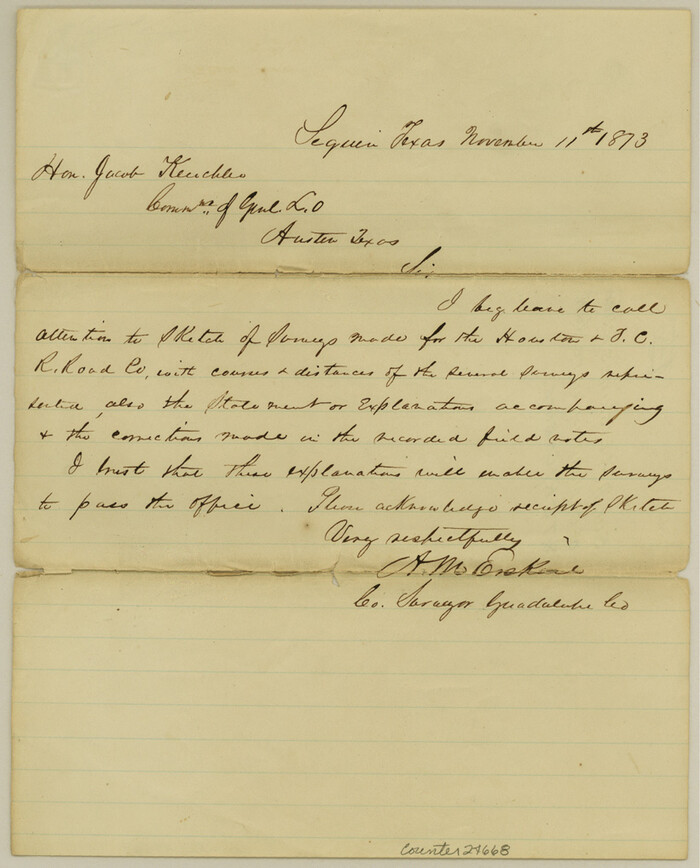 Seguin Texas November 11th 1873
Hon. Jacob Keuchler
Commr. of Genl. L. O
Austin Texas
Sir
I beg leave to call
attention to Sketch of Surveys made for the Houston & T. C.
R. Road Co, with courses & distances of the several Surveys repre-
sented, also the Statement or Explanation accompanying
& the corrections made in the recorded field notes
I trust that these explanations will enable the surveys
to pass the office. Please acknowledge receipt of Sketch
Very respectfully
A. M. Erskine
Co. Surveyor Guadalupe Co
counter 24668